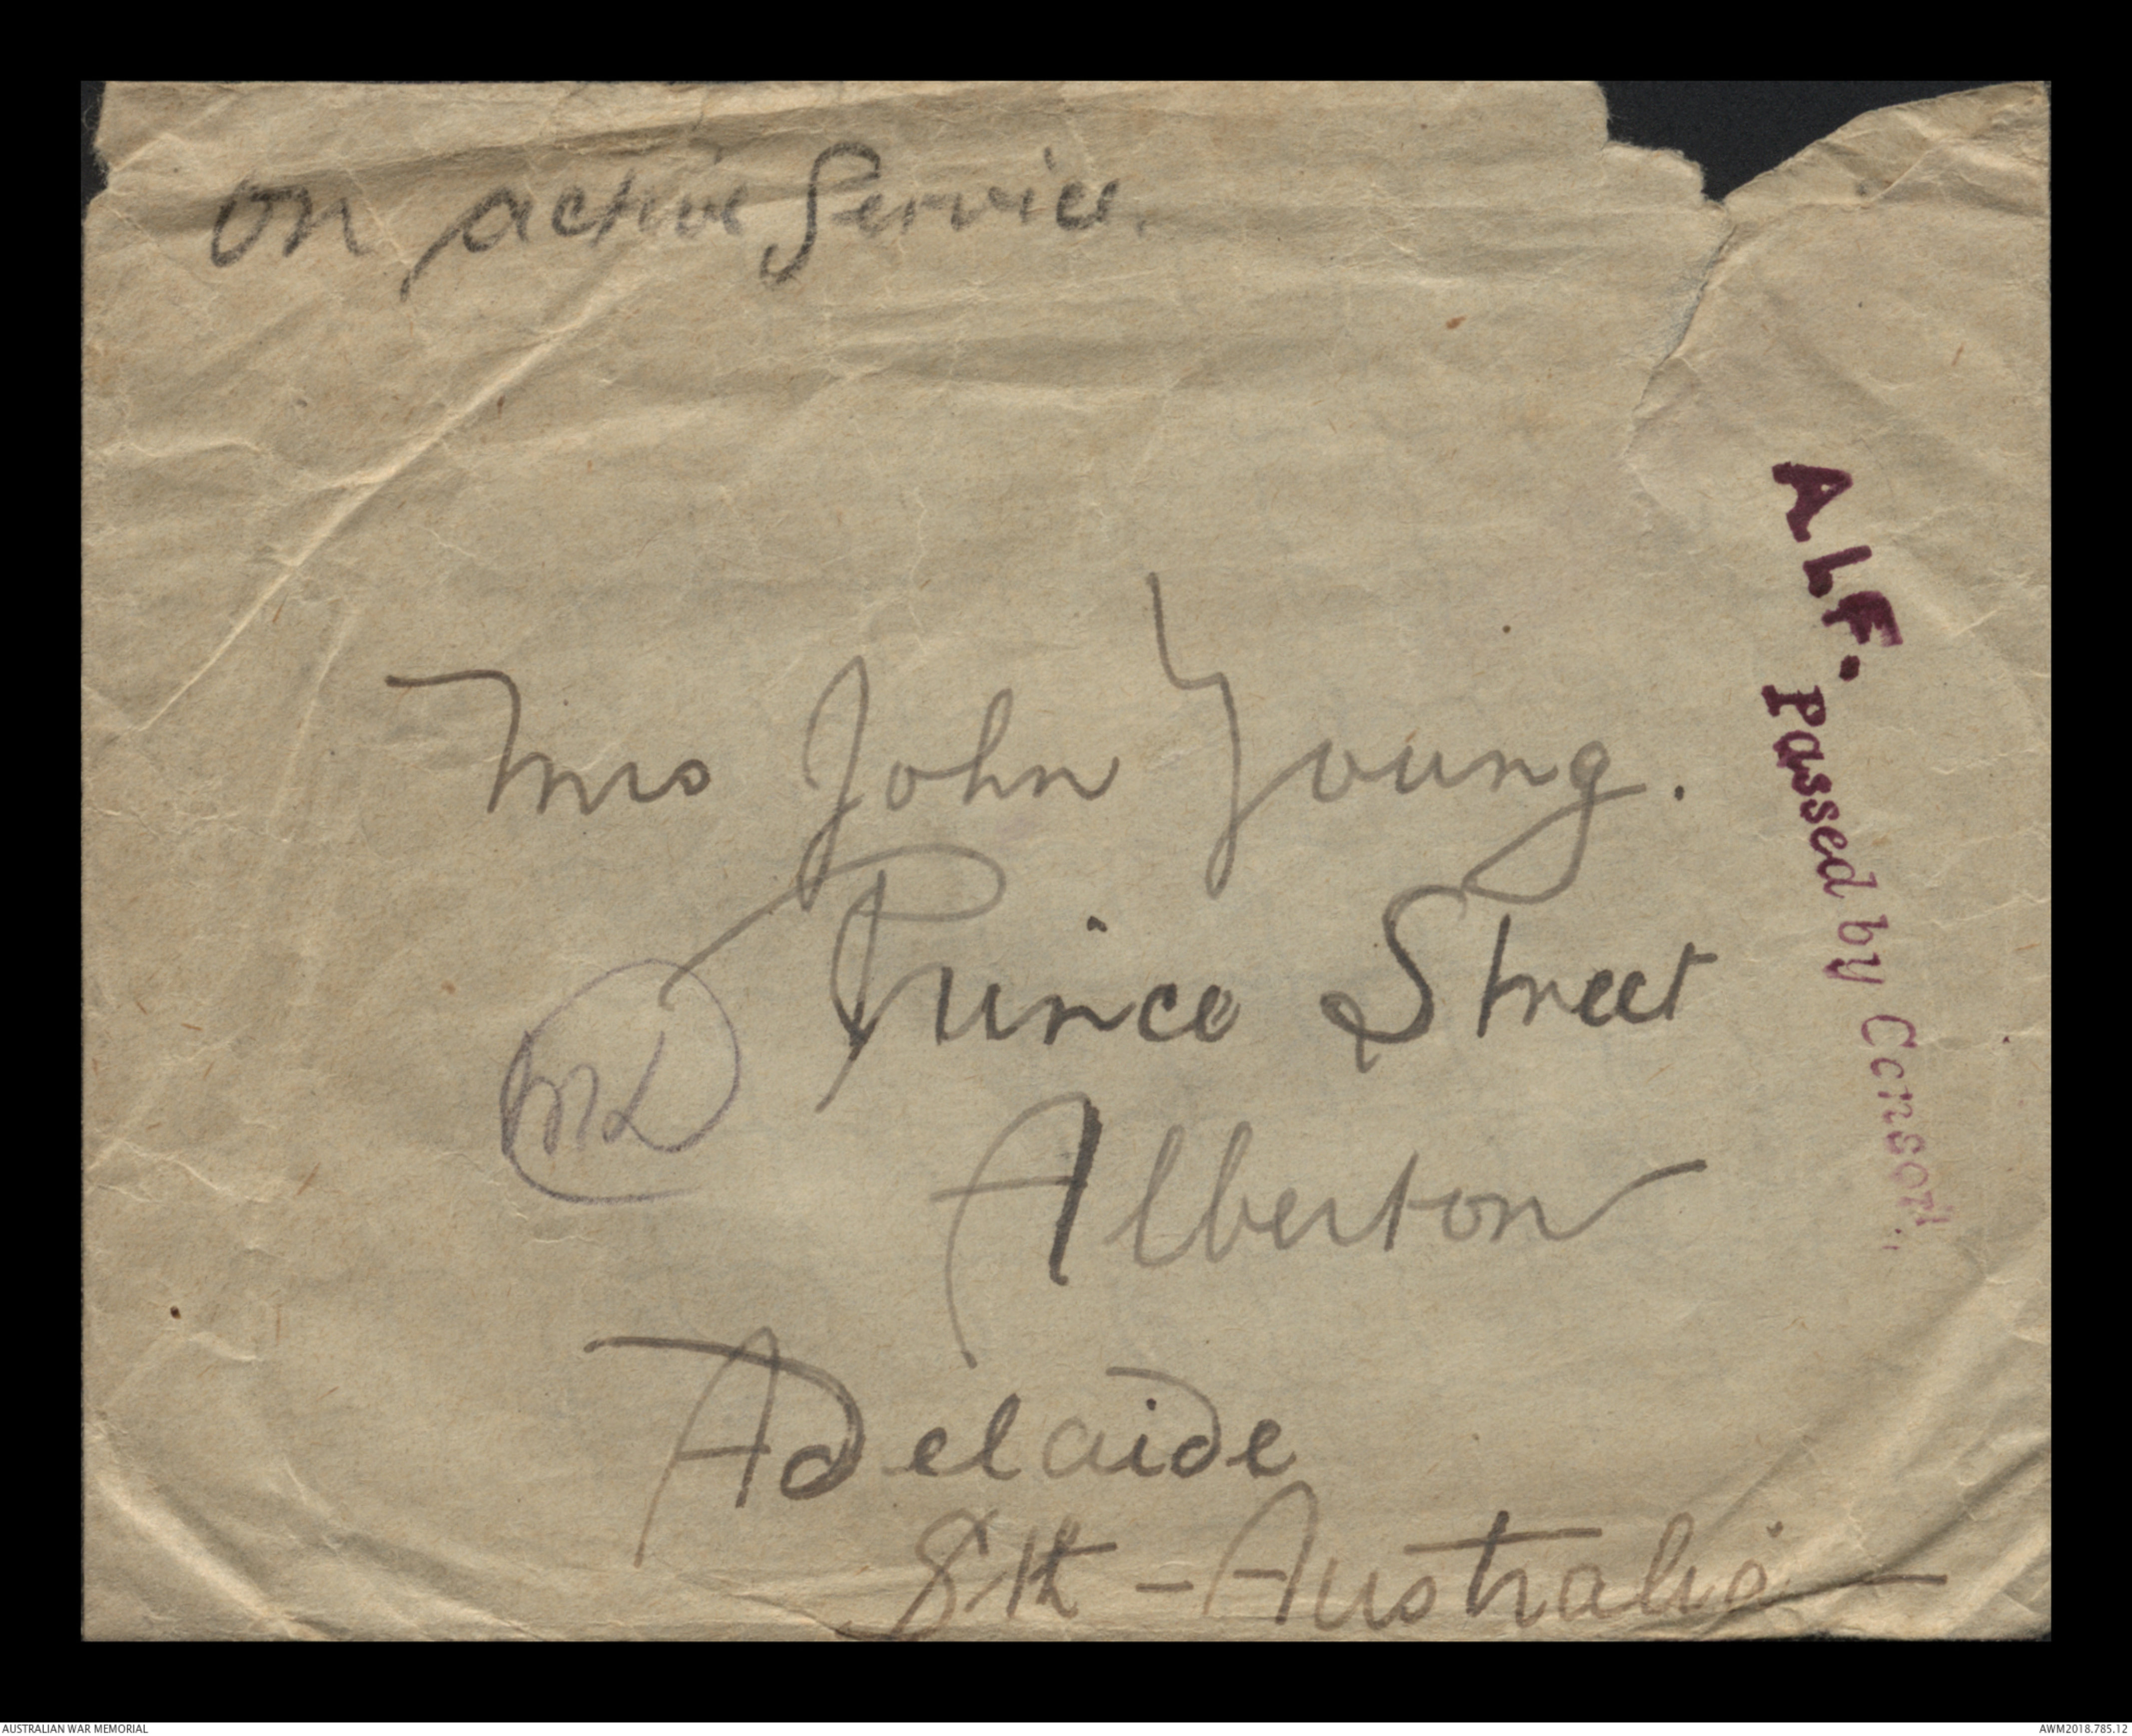 on active Service.
Mrs John Young.
Prince Street
Alberton
Adelaide
Sth - Australia -
A.I.F. Passed by Censor.
AUSTRALIAN WAR MEMORIAL
AWM2018.785.12